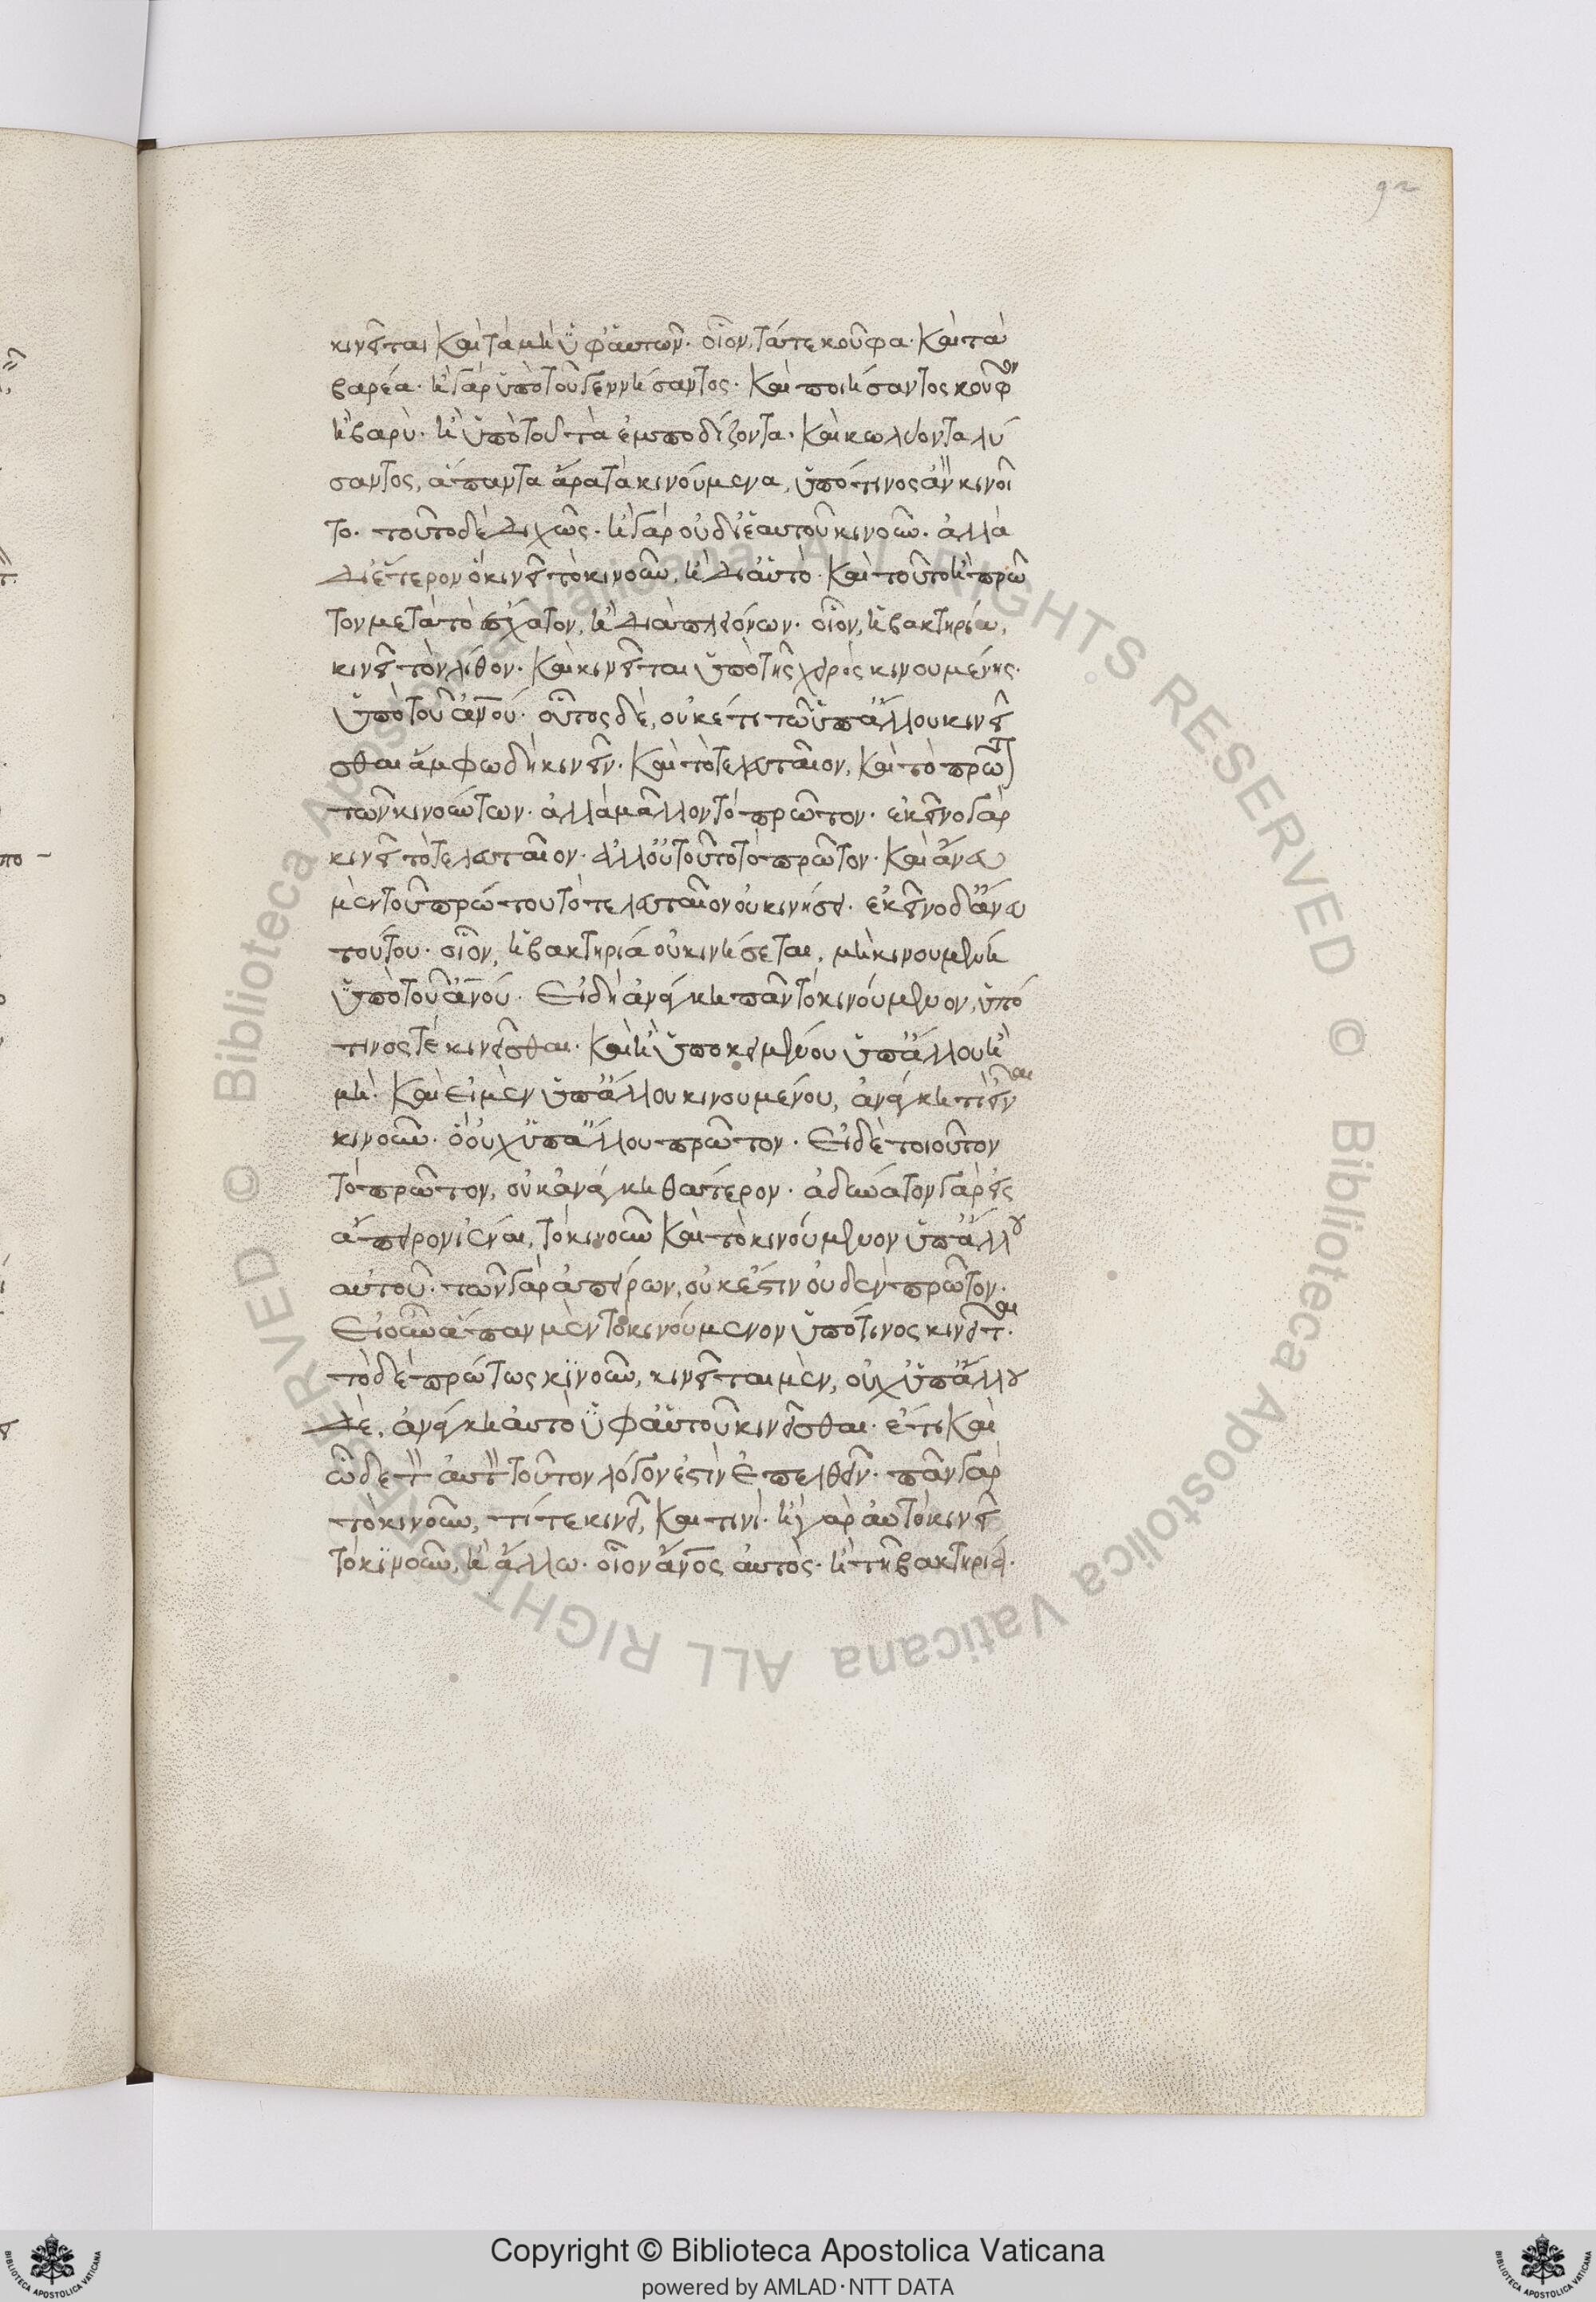 92
κινεῖται καὶ τὰ μὴ ὑφ' αὑτῶν. οἷον, τά τε κοῦφα. καὶ τὰ
βαρέα. ἢ γὰρ ὑπὸ τοῦ γεννήσαντος. καὶ ποιήσαντος κοῦφον
ἢ βαρὺ. ἢ ὑπὸ τοῦ τὰ ἐμποδίζοντα. καὶ κωλύοντα λύ
σαντος, ἅπαντα ἄρα τὰ κινούμενα, ὑπό τινος ἂν κινοῖ
το. τοῦτο δὲ διχῶς. ἢ γὰρ οὐ δι' ἑαυτοῦ κινοῦν. ἀλλὰ
δι' ἕτερον ὃ κινεῖ τὸ κινοῦν, ἢ δι' αὑτὸ. καὶ τοῦτο ἢ πρῶ
τον μετὰ τὸ ἔσχατον, ἢ διὰ πλειόνων. οἷον, ἡ βακτηρία,
κινεῖ τὸν λίθον. καὶ κινεῖται ὑπὸ τῆς χειρὸς κινουμένης.
ὑπὸ τοῦ ἀν̅ου. οὗτος δὲ, οὐκέτι τῶ ὑπ' ἄλλου κινεῖ
σθαι ἄμφω δὴ κινεῖν. καὶ τὸ τελευταῖον, καὶ τὸ πρῶτ
τῶν κινούντων. ἀλλὰ μᾶλλον τὸ πρῶτον. ἐκεῖνο γὰρ
κινεῖ τὸ τελευταῖον. ἀλλ' οὐ τοῦτο τὸ πρῶτον. καὶ ἄνευ
μὲν τοῦ πρώτου τὸ τελευταῖον οὐ κινήσει. ἐκεῖνο δ' ἄνευ
τούτου. οἷον, ἡ βακτηρία οὐ κινήσεται, μὴ κινουμένη
ὑπὸ τοῦ ἀν̅ου. Εἰ δὴ ἀνάγκη πᾶν τὸ κινούμενον, ὑπό
τινός τε κινεῖσθαι. καὶ ἢ ὑποκειμένου ὑπ' ἄλλου ἢ
μὴ. καὶ εἰ μὲν ὑπ' ἄλλου κινουμένου, ἀνάγκη τι εἶναι
κινοῦν. ὃ οὐχ ὑπ' ἄλλου πρῶτον. Εἰ δὲ τοιοῦτον
τὸ πρῶτον, οὐκ ἀνάγκη θάτερον. ἀδύνατον γὰρ εἰς
ἄπειρον ἰέναι, τὸ κινοῦν καὶ τὸ κινούμενον ὑπ' ἄλλου
αὐτοῦ. τῶν γὰρ ἀπείρων, οὐκ ἔστιν οὐδὲν πρῶτον.
Εἰ οὖν ἅπαν μὲν τὸ κινούμενον ὑπό τινος κινεῖται.
τὸ δὲ πρώτως κινοῦν, κινεῖται μὲν, οὐχ ὑπ' ἄλλου
δὲ, ἀνάγκη αὐτὸ ὑφ' αὑτοῦ κινεῖσθαι. ἔτι καὶ
ὧδε τὸν αὐτὸν τοῦτον λόγον ἐστὶν ἐπελθεῖν. πᾶν γὰρ
τὸ κινοῦν, τί τε κινεῖ, καὶ τινί. ἢ γὰρ αὑτὸ κινεῖ
τὸ κινοῦν, ἢ ἄλλω. οἷον ἄν̅ος αὐτὸς. ἢ τῆ βακτηρία.
Copyright © Biblioteca Apostolica Vaticana
powered by AMLAD·NTT DATA